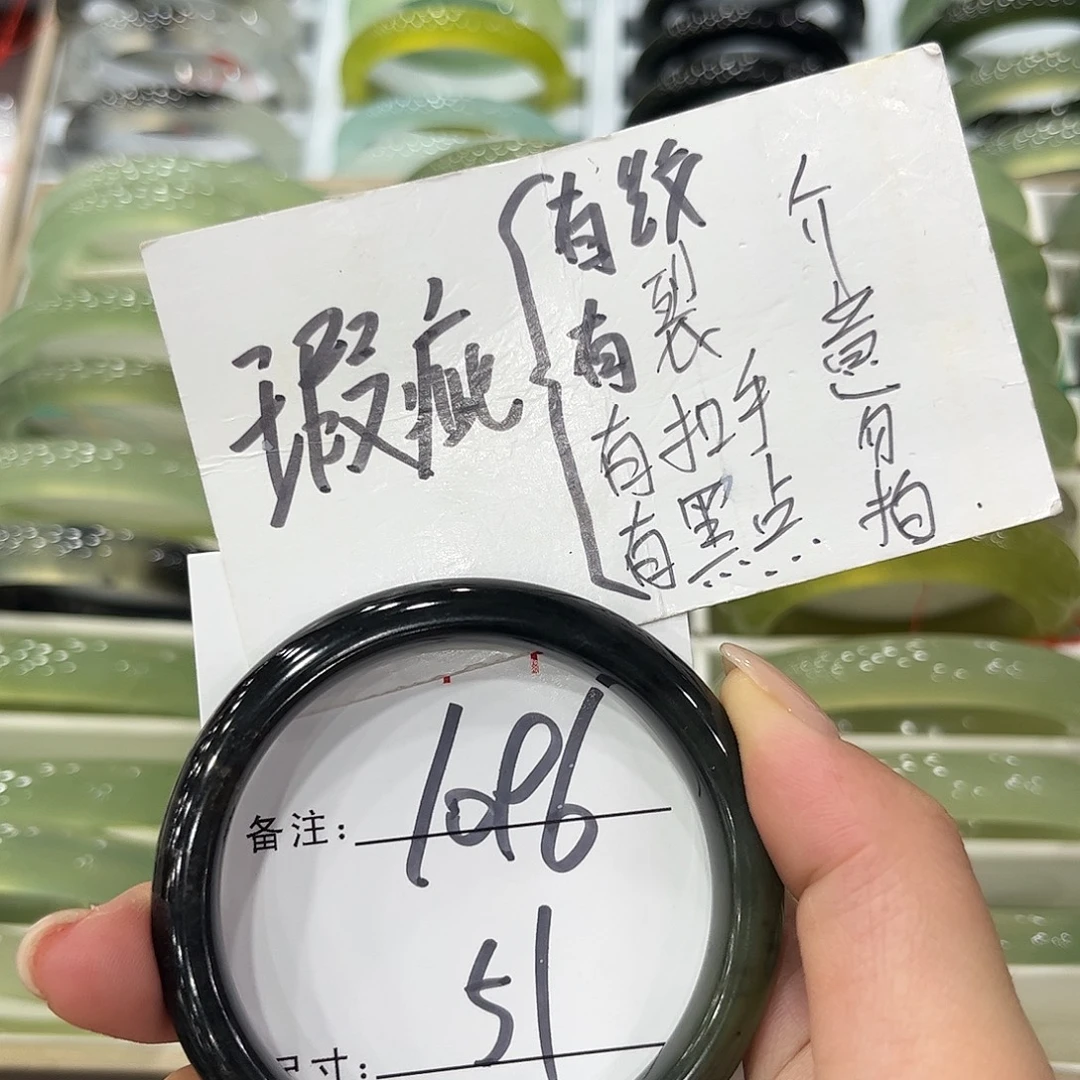 瑕疵
有纹
有裂
有扣手
有黑点...
介意勿拍.
备注: 1096
尺寸: 51